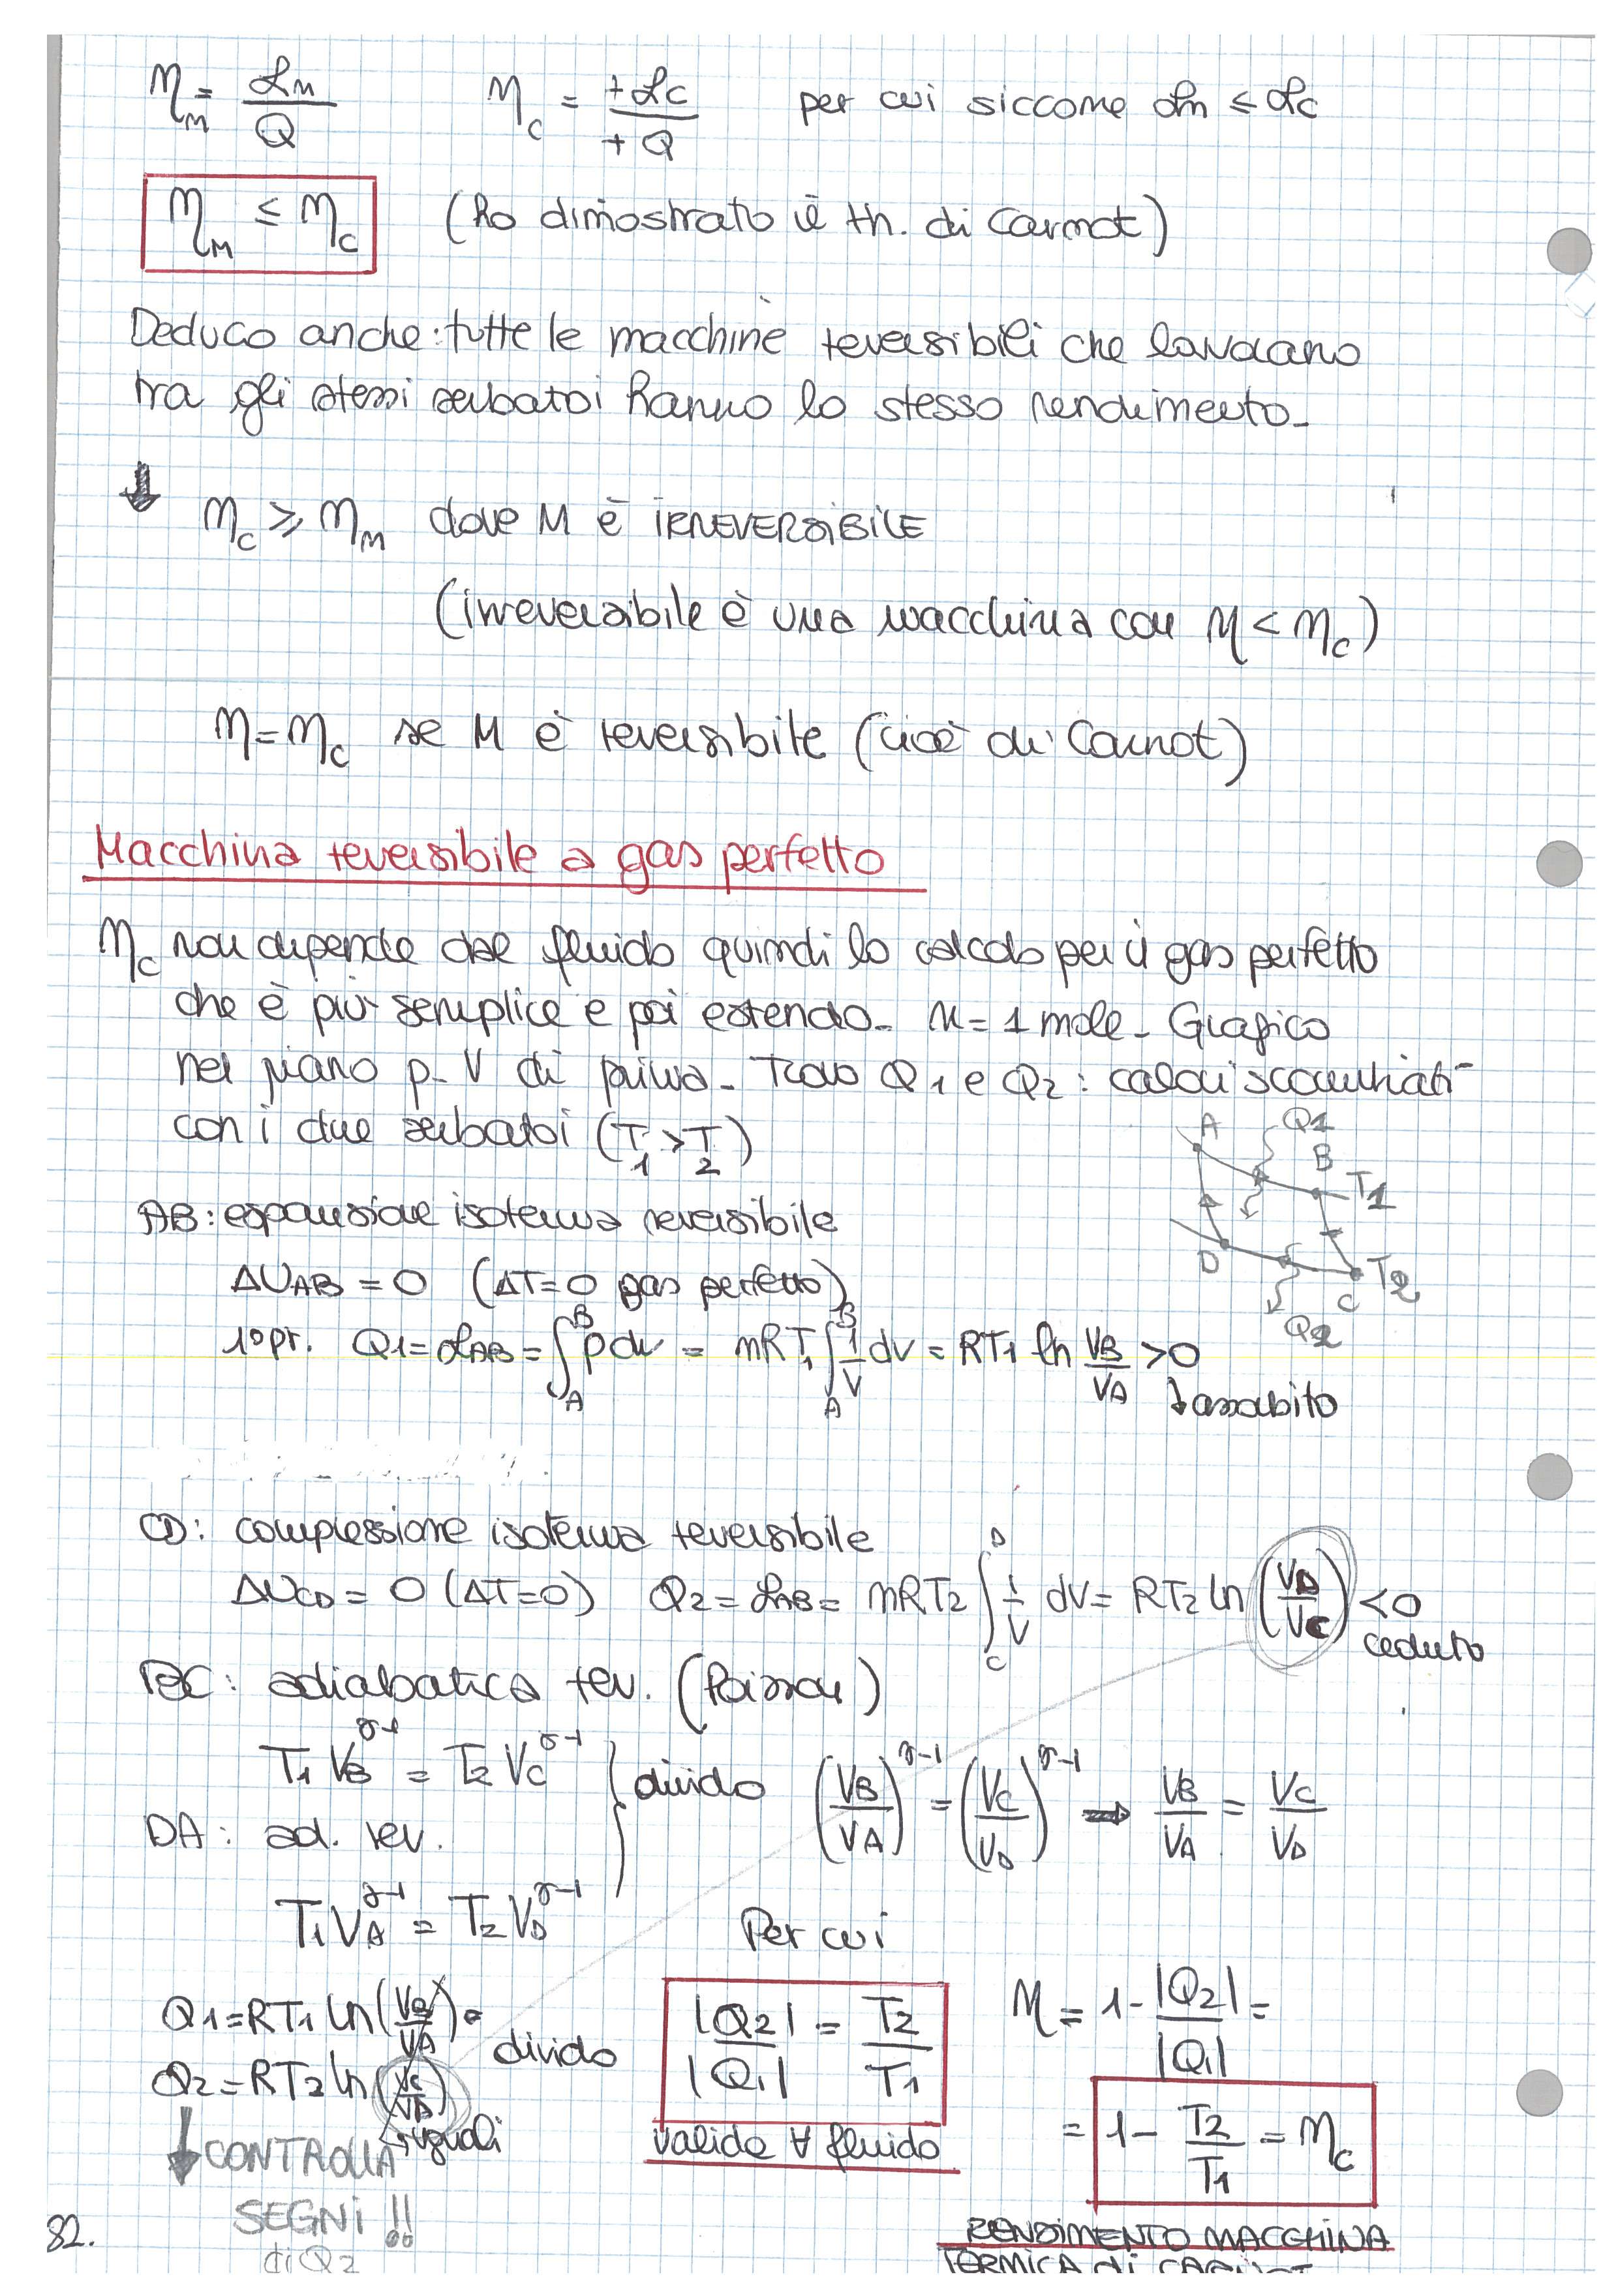 η_M = ℒ_M / Q    η_C = +ℒ_C / +Q    per cui siccome ℒ_M ≤ ℒ_C
η_M ≤ η_C    (ho dimostrato il th. di Carnot)
Deduco anche: tutte le macchine reversibili che lavorano
tra gli stessi serbatoi hanno lo stesso rendimento.
↓ η_C ≥ η_M dove M è IRREVERSIBILE
(irreversibile è una macchina con η < η_C)
η = η_C se M è reversibile (cioè di Carnot)
Macchina reversibile a gas perfetto
η_C non dipende dal fluido quindi lo calcolo per il gas perfetto
che è più semplice e poi estendo. n = 1 mole. Grafico
nel piano p-V di prima. Trovo Q1 e Q2: calori scambiati
con i due serbatoi (T1 > T2)
A Q1 B T1
D C T2
Q2
AB: espansione isoterma reversibile
ΔU_AB = 0 (ΔT=0 gas perfetto)
1° pr. Q1 = ℒ_AB = ∫_A^B p dV = nRT1 ∫_A^B 1/V dV = RT1 ln V_B/V_A > 0
↓ assorbito
CD: compressione isoterma reversibile
ΔU_CD = 0 (ΔT=0) Q2 = ℒ_AB = nRT2 ∫_C^D 1/V dV = RT2 ln (V_D/V_C) < 0
ceduto
BC: adiabatica rev. (Poisson)
T1 V_B^γ-1 = T2 V_C^γ-1 } divido (V_B/V_A)^γ-1 = (V_C/V_D)^γ-1 ⇒ V_B/V_A = V_C/V_D
DA: ad. rev.
T1 V_A^γ-1 = T2 V_D^γ-1
Per cui
Q1 = RT1 ln (V_B/V_A)
divido
Q2 = RT2 ln (V_C/V_D)
uguali
|Q2| / |Q1| = T2 / T1
valida ∀ fluido
η = 1 - |Q2| / |Q1| =
= 1 - T2/T1 = η_C
↓ CONTROLLA
SEGNI !!
di Q2
RENDIMENTO MACCHINA
TERMICA di CARNOT
82.